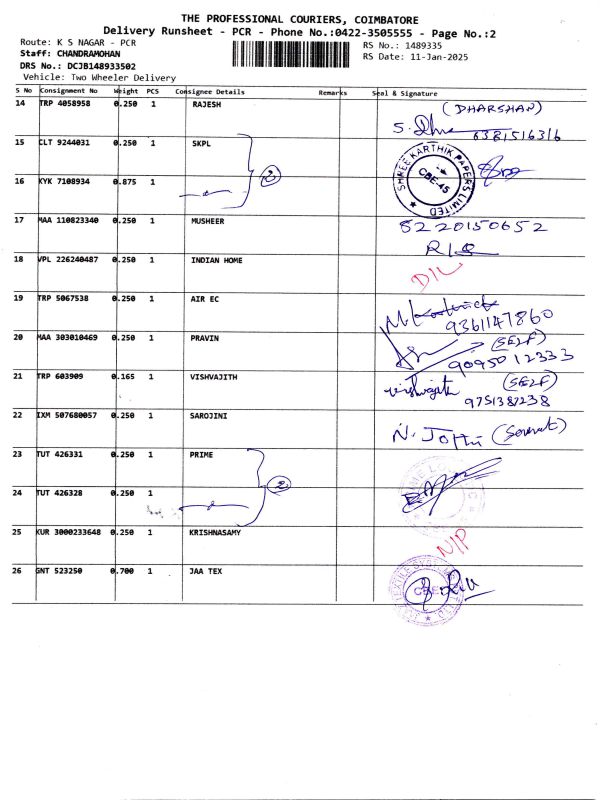 THE PROFESSIONAL COURIERS, COIMBATORE
Delivery Runsheet - PCR - Phone No.:0422-3505555 - Page No.:2
Route: K S NAGAR - PCR
RS No.: 1489335
Staff: CHANDRAMOHAN
RS Date: 11-Jan-2025
DRS No.: DCJB148933502
Vehicle: Two Wheeler Delivery
S No Consignment No Weight PCS Consignee Details Remarks Seal & Signature
14 TRP 4058958 0.250 1 RAJESH (DHARSHAN)
6381516316
15 CLT 9244031 0.250 1 SKPL
2
SHREE KARTHIK PAPERS LIMITED
CBE-45
16 KYK 7108934 0.875 1
17 MAA 110823340 0.250 1 MUSHEER 8220150652
18 VPL 226240487 0.250 1 INDIAN HOME D/L
19 TRP 5067538 0.250 1 AIR EC
9361147860
20 MAA 303010469 0.250 1 PRAVIN (SELF)
9095012333
21 TRP 603909 0.165 1 VISHVAJITH (SELF)
9751387238
22 IXM 507680057 0.250 1 SAROJINI
23 TUT 426331 0.250 1 PRIME
2
24 TUT 426328 0.250 1
25 KUR 3000233648 0.250 1 KRISHNASAMY N/P
26 GNT 523250 0.700 1 JAA TEX